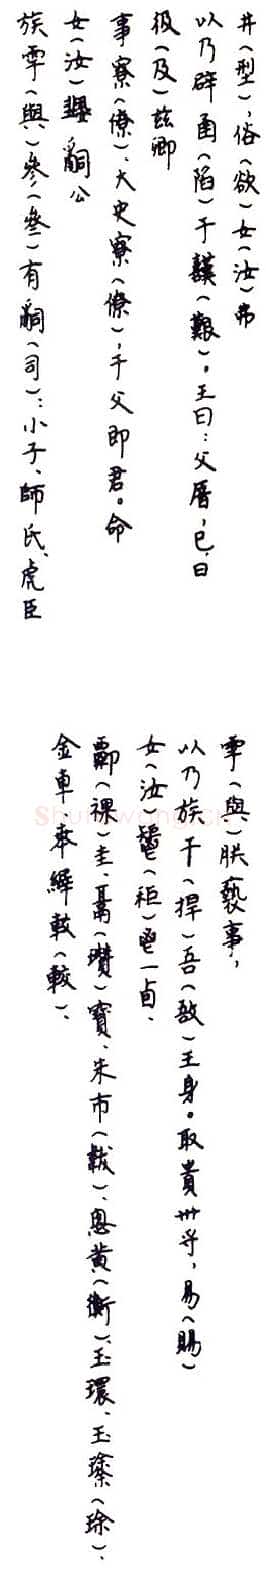 井（型），俗（欲）女（汝）弗
以乃辟圅（陷）于囏（艱）。王曰：父厝，已，曰
彶（及）茲卿
事寮（僚）、大史寮（僚），于父即君。命
女（汝）𤔲公
族雩（與）參（叁）有嗣（司）：小子、師氏、虎臣
雩（與）朕褻事，
以乃族干（捍）吾（敔）王身。取貴卅寽，易（賜）
女（汝）鬯（秬）鬯一卣、
（祼）圭、鬲（瓚）寶、朱巿（韍）、悤黃（衡）、玉環、玉瑹（瑹）、
金車、𠦪縪較（較）、